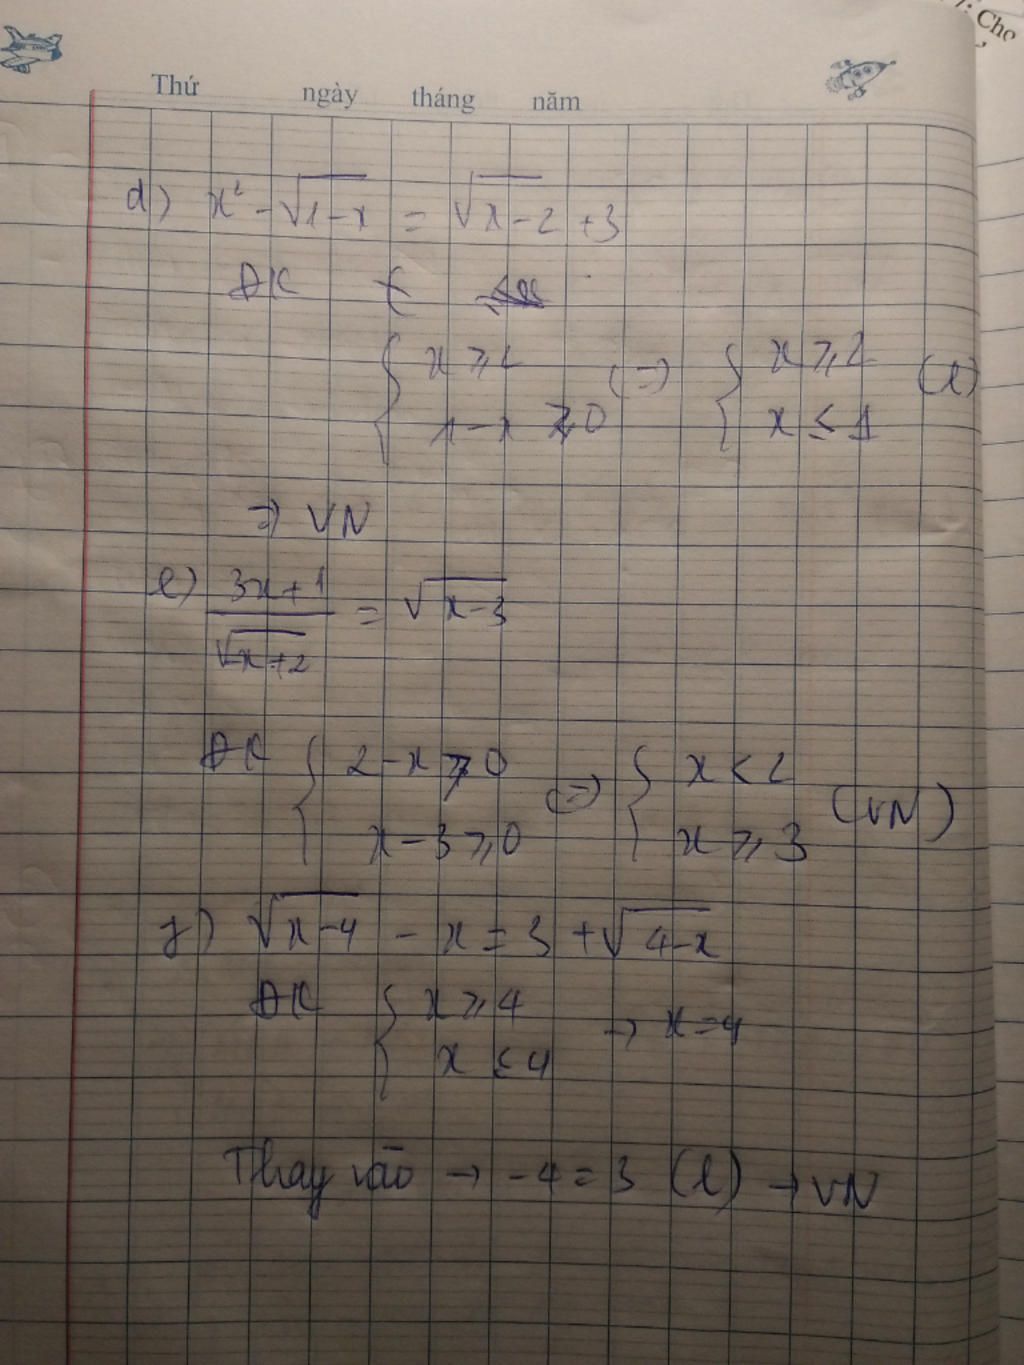 ): Cho
Thứ ngày tháng năm
d) x² - √1-x = √x-2 + 3
ĐK {
{ x ⩾ 2 (=) { x ⩾ 2 (l)
1 - x ⩾ 0 x ≤ 1
=> VN
e) 3x+1 / √x+2 = √x-3
ĐK { 2-x > 0 (=) { x < 2 (VN)
x - 3 ⩾ 0 x ⩾ 3
g) √x-4 - x = 3 + √4-x
ĐK { x ⩾ 4 → x = 4
x ≤ 4
Thay vào → -4 = 3 (l) → VN